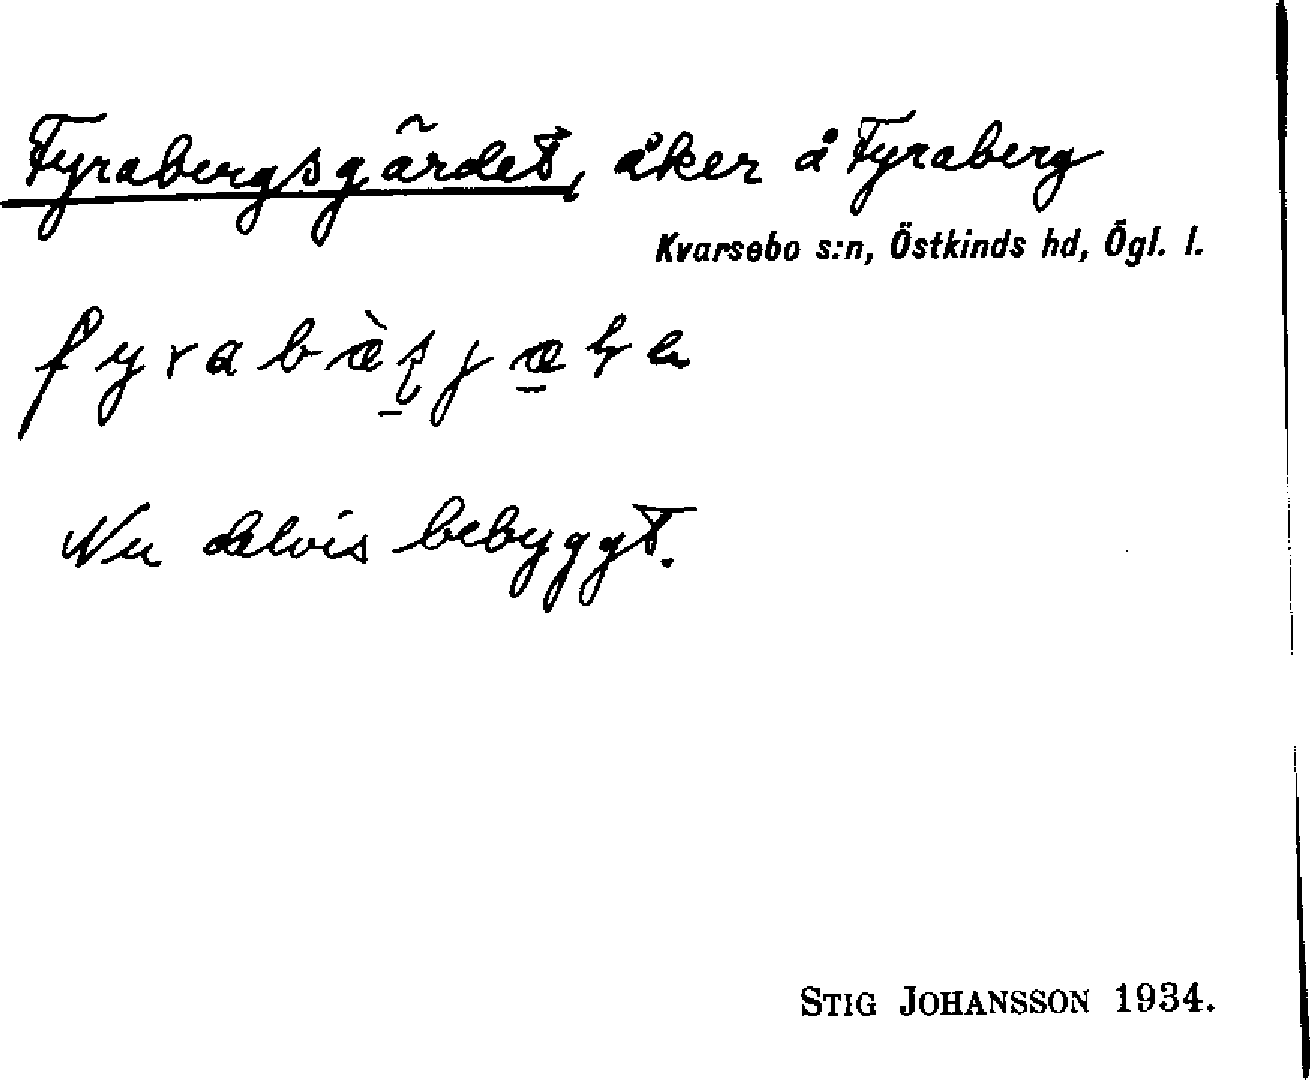 Fyrabergsgärdet, åker å Fyraberg
Kvarsebo s:n, Östkinds hd, Ögl. l.
Nu delvis bebyggt.
STIG JOHANSSON 1934.